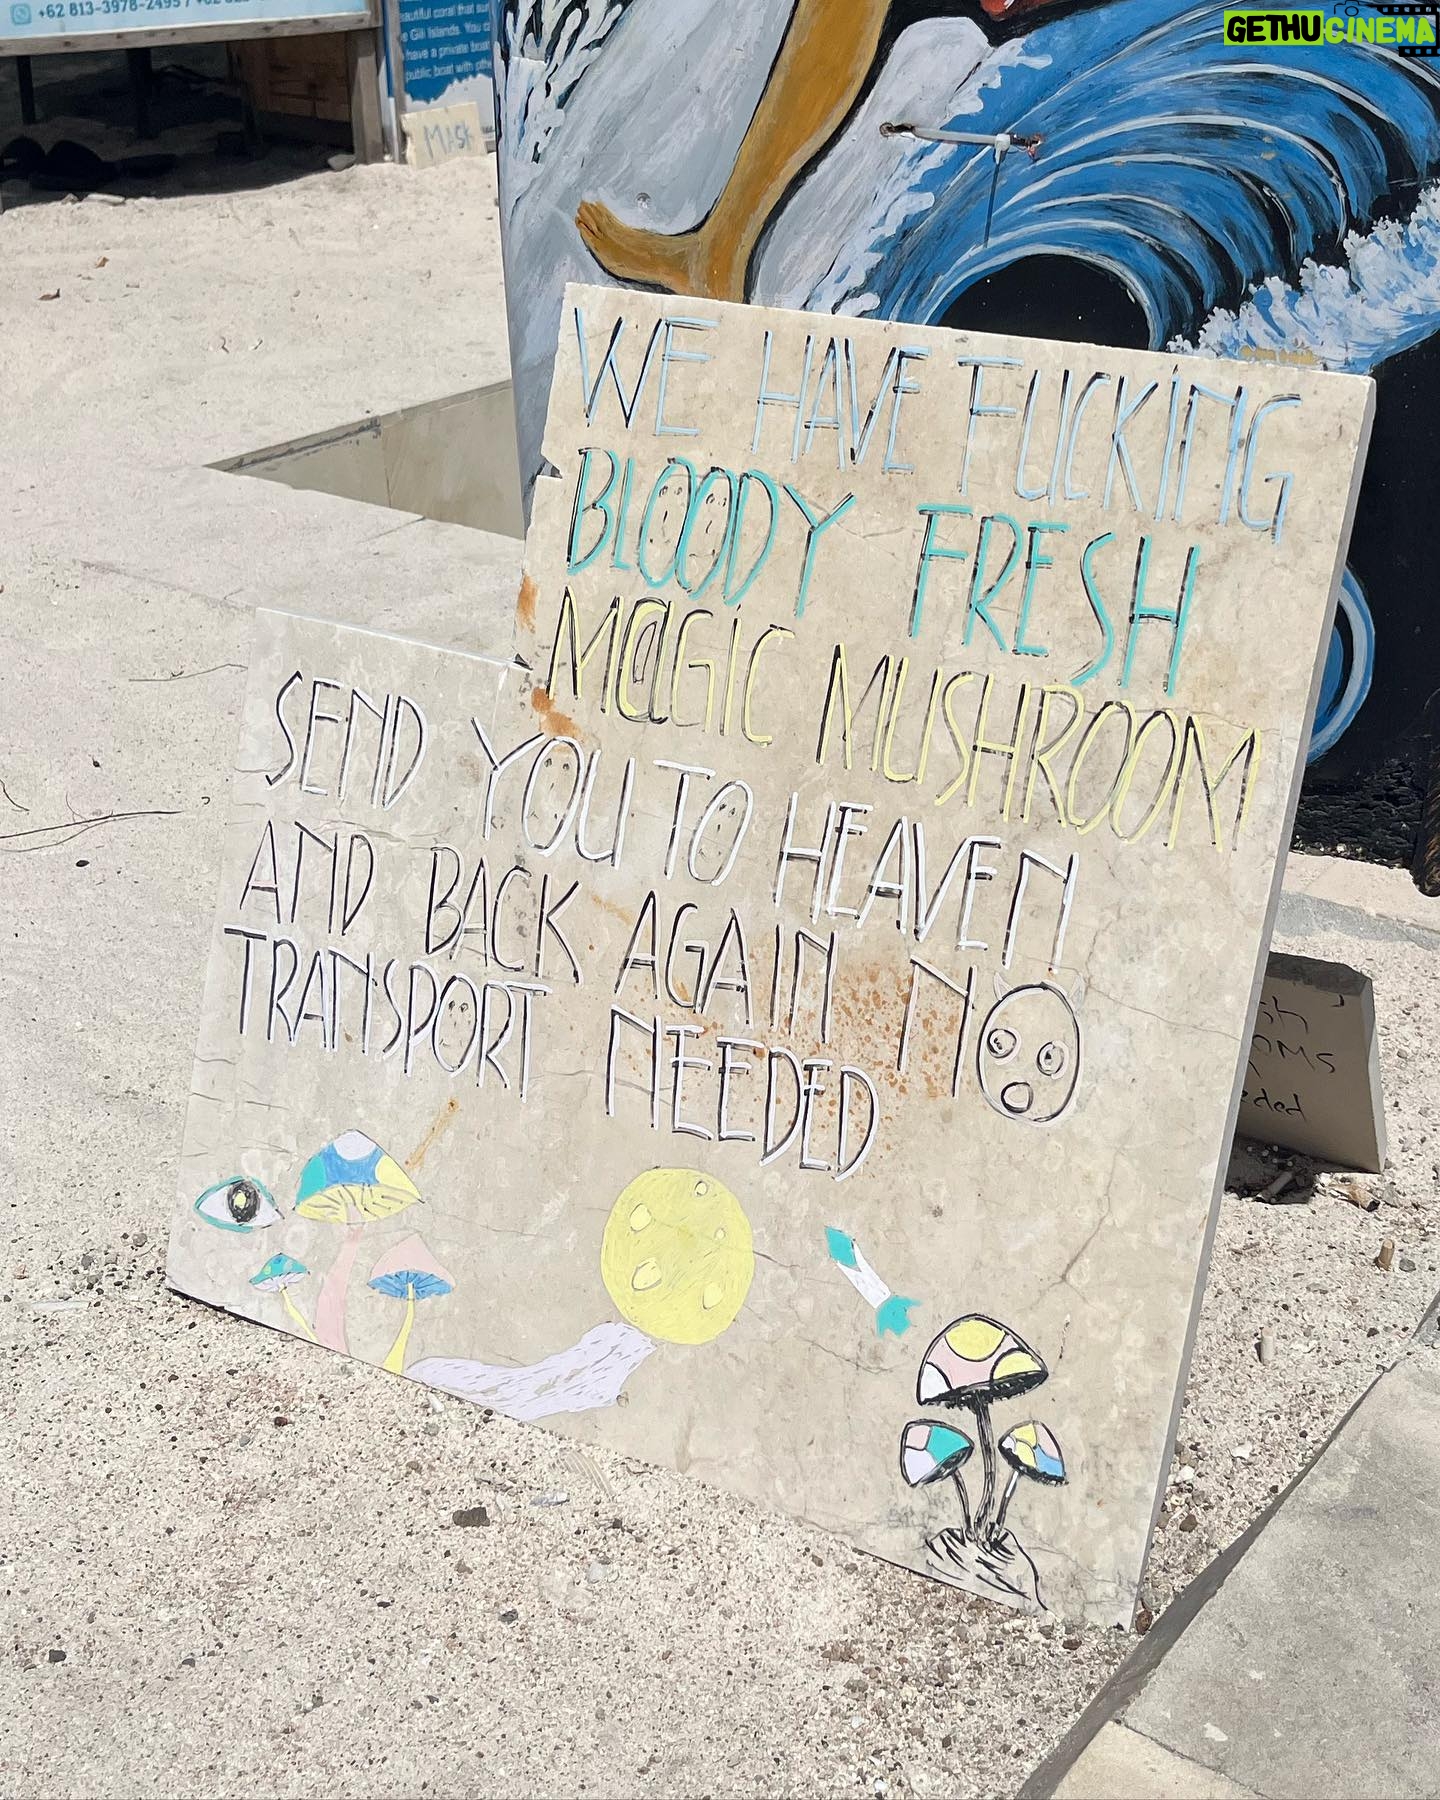 +62 813-3978-2495 /
autiful coral that sur
Gili Islands. You c
have a private boat
public boat with othe
MASK
GETHUCINEMA
WE HAVE FUCKING
BLOODY FRESH
M@GIC MUSHROOM
SEND YOU TO HEAVEN
AND BACK AGAIN NO
TRANSPORT NEEDED